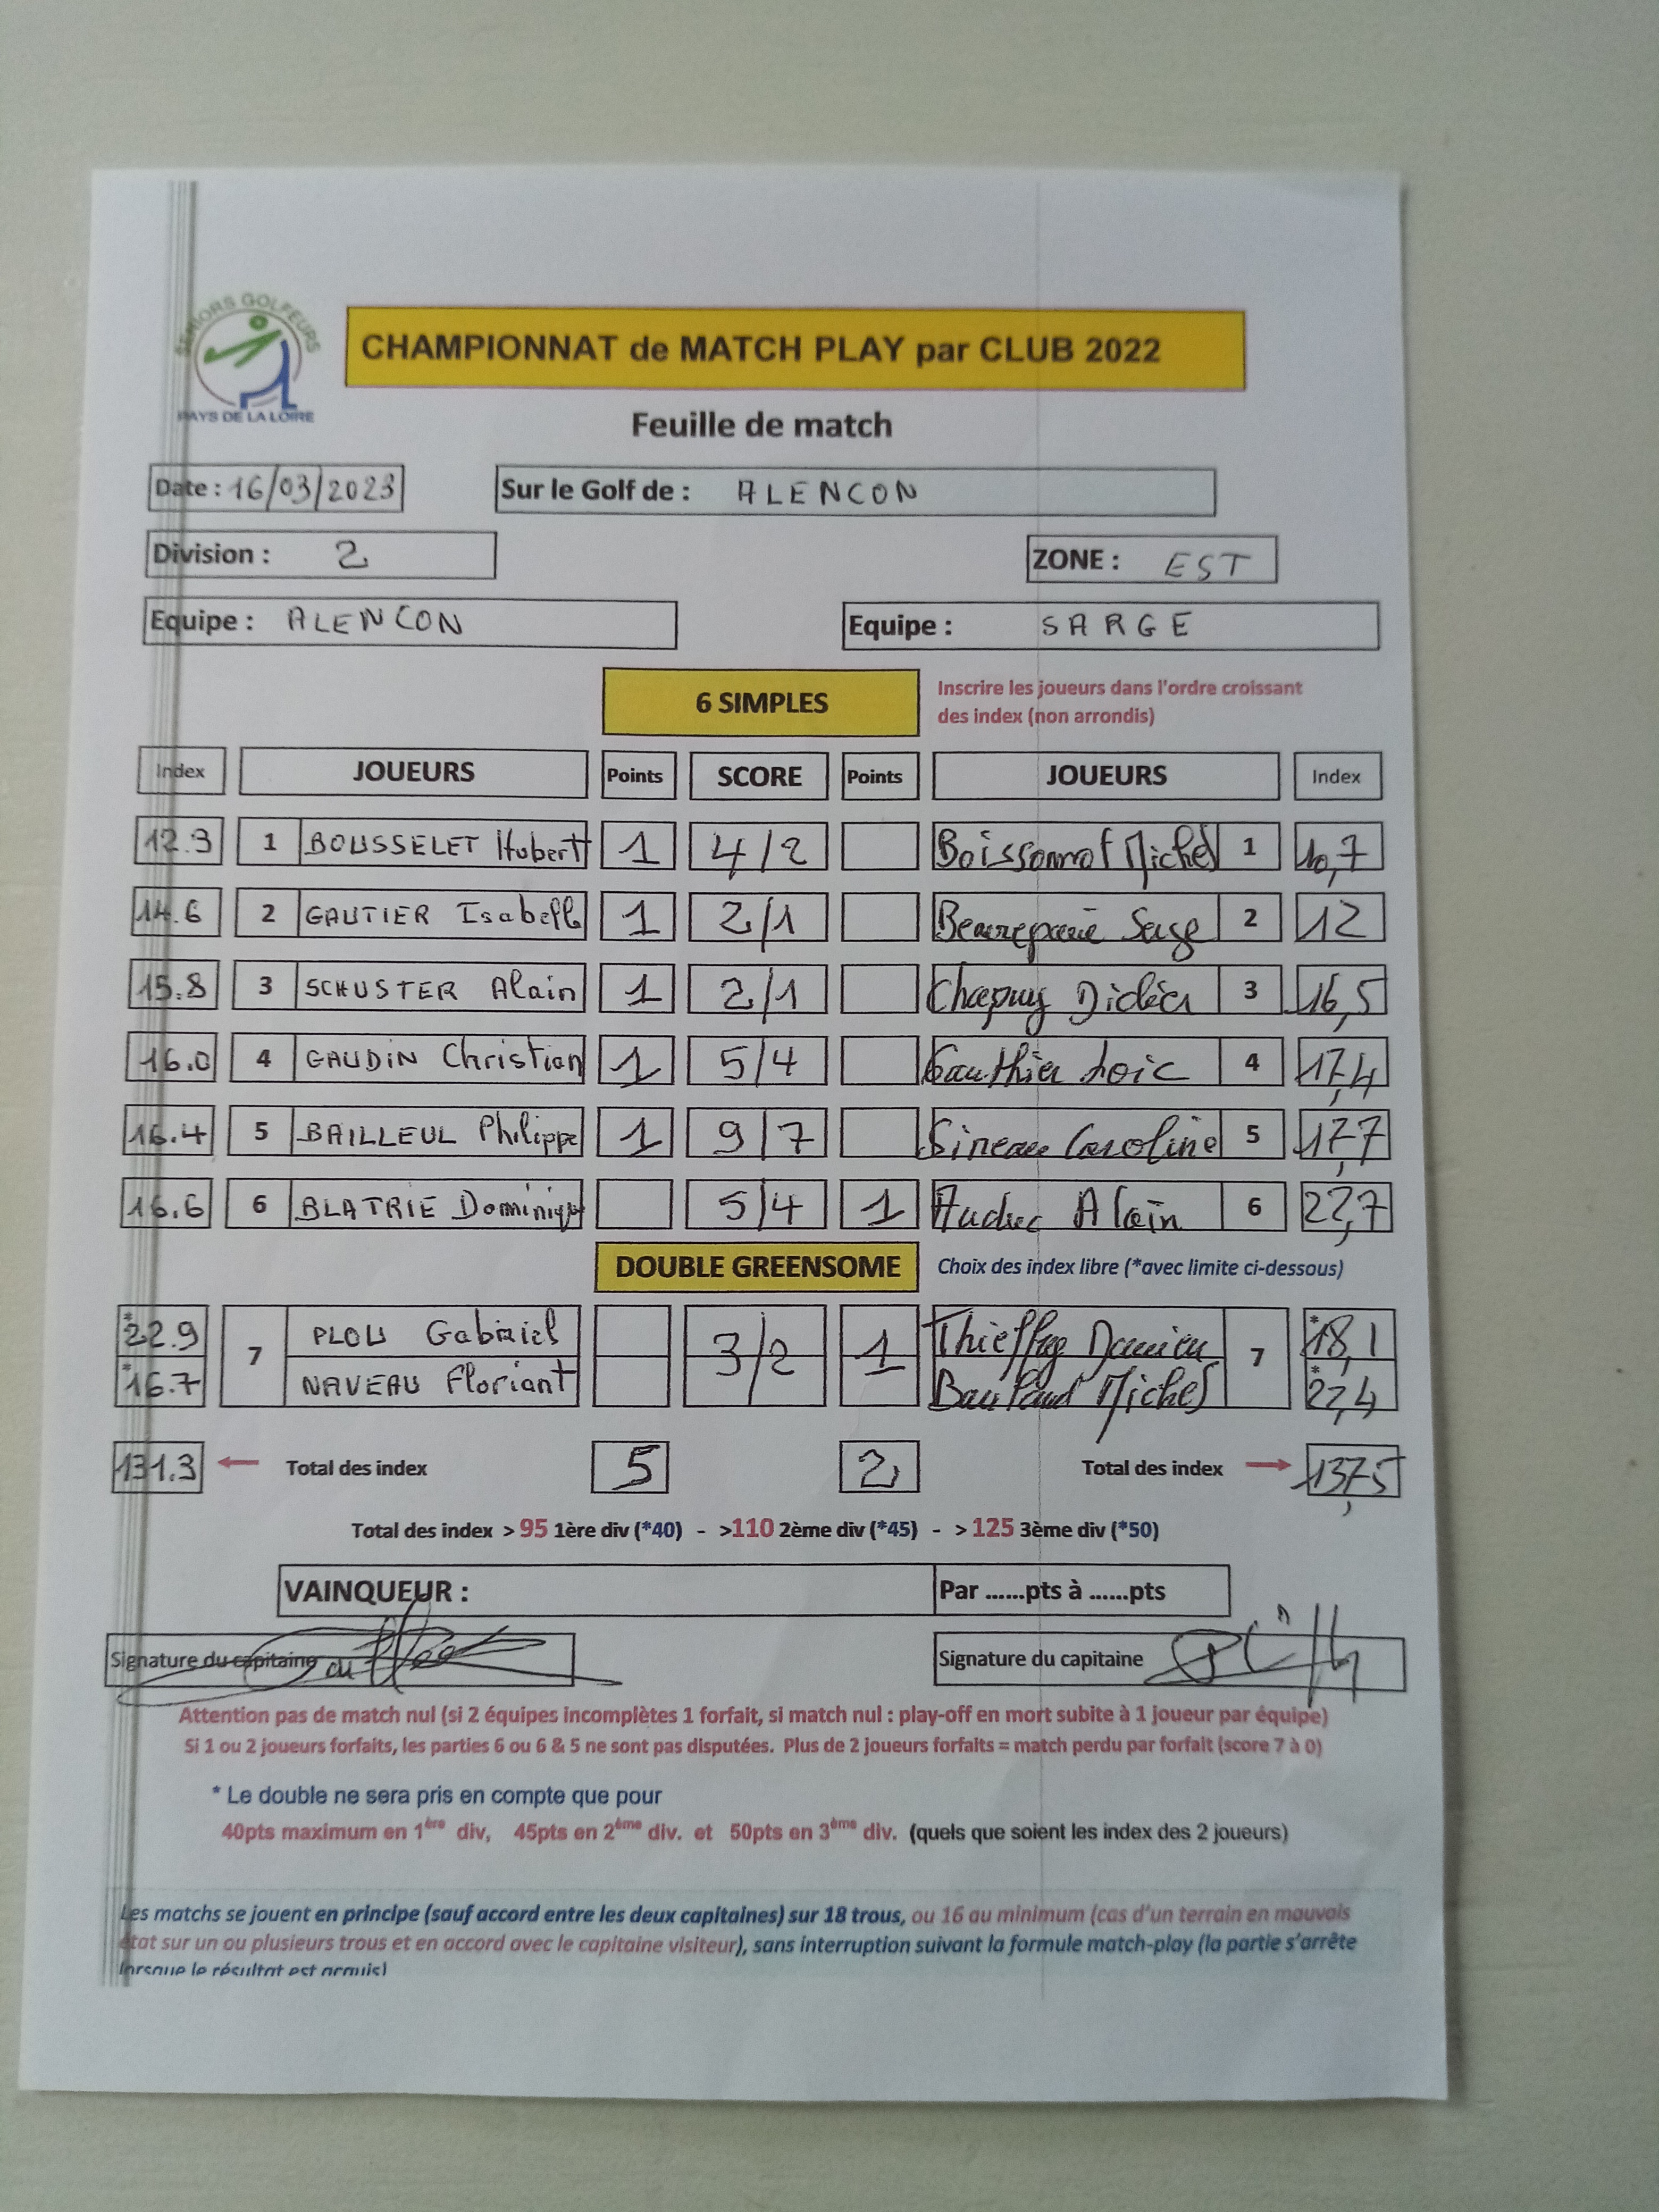 SENIORS GOLFEURS
PAYS DE LA LOIRE
CHAMPIONNAT de MATCH PLAY par CLUB 2022
Feuille de match
Date : 16/03/2023 Sur le Golf de : ALENCON
Division : 2 ZONE : EST
Equipe : ALENCON Equipe : SARGE
6 SIMPLES Inscrire les joueurs dans l'ordre croissant
des index (non arrondis)
Index JOUEURS Points SCORE Points JOUEURS Index
12.3 1 BOUSSELET Hubert 1 4/2 Boissonnot Michel 1 10,7
14.6 2 GAUTIER Isabelle 1 2/1 Beaurepaire Serge 2 12
15.8 3 SCHUSTER Alain 1 2/1 Chapuy Didier 3 16,5
16.0 4 GAUDIN Christian 1 5/4 Gauthier Loic 4 17,4
16.4 5 BAILLEUL Philippe 1 9/7 Sineau Caroline 5 17,7
16.6 6 BLATRIE Dominique 5/4 1 Alain 6 22,7
DOUBLE GREENSOME Choix des index libre (*avec limite ci-dessous)
*22.9 7 PLOU Gabriel 3/2 1 Damien 7 *18,1
*16.7 NAVEAU Floriant Michel *22,4
131.3 ← Total des index 5 2 Total des index → 137,5
Total des index > 95 1ère div (*40) - >110 2ème div (*45) - > 125 3ème div (*50)
VAINQUEUR : Par ......pts à ......pts
Signature du capitaine Signature du capitaine
Attention pas de match nul (si 2 équipes incomplètes 1 forfait, si match nul : play-off en mort subite à 1 joueur par équipe)
Si 1 ou 2 joueurs forfaits, les parties 6 ou 6 & 5 ne sont pas disputées. Plus de 2 joueurs forfaits = match perdu par forfait (score 7 à 0)
* Le double ne sera pris en compte que pour
40pts maximum en 1ère div, 45pts en 2ème div. et 50pts en 3ème div. (quels que soient les index des 2 joueurs)
Les matchs se jouent en principe (sauf accord entre les deux capitaines) sur 18 trous, ou 16 au minimum (cas d'un terrain en mauvais
état sur un ou plusieurs trous et en accord avec le capitaine visiteur), sans interruption suivant la formule match-play (la partie s'arrête
lorsque le résultat est acquis)